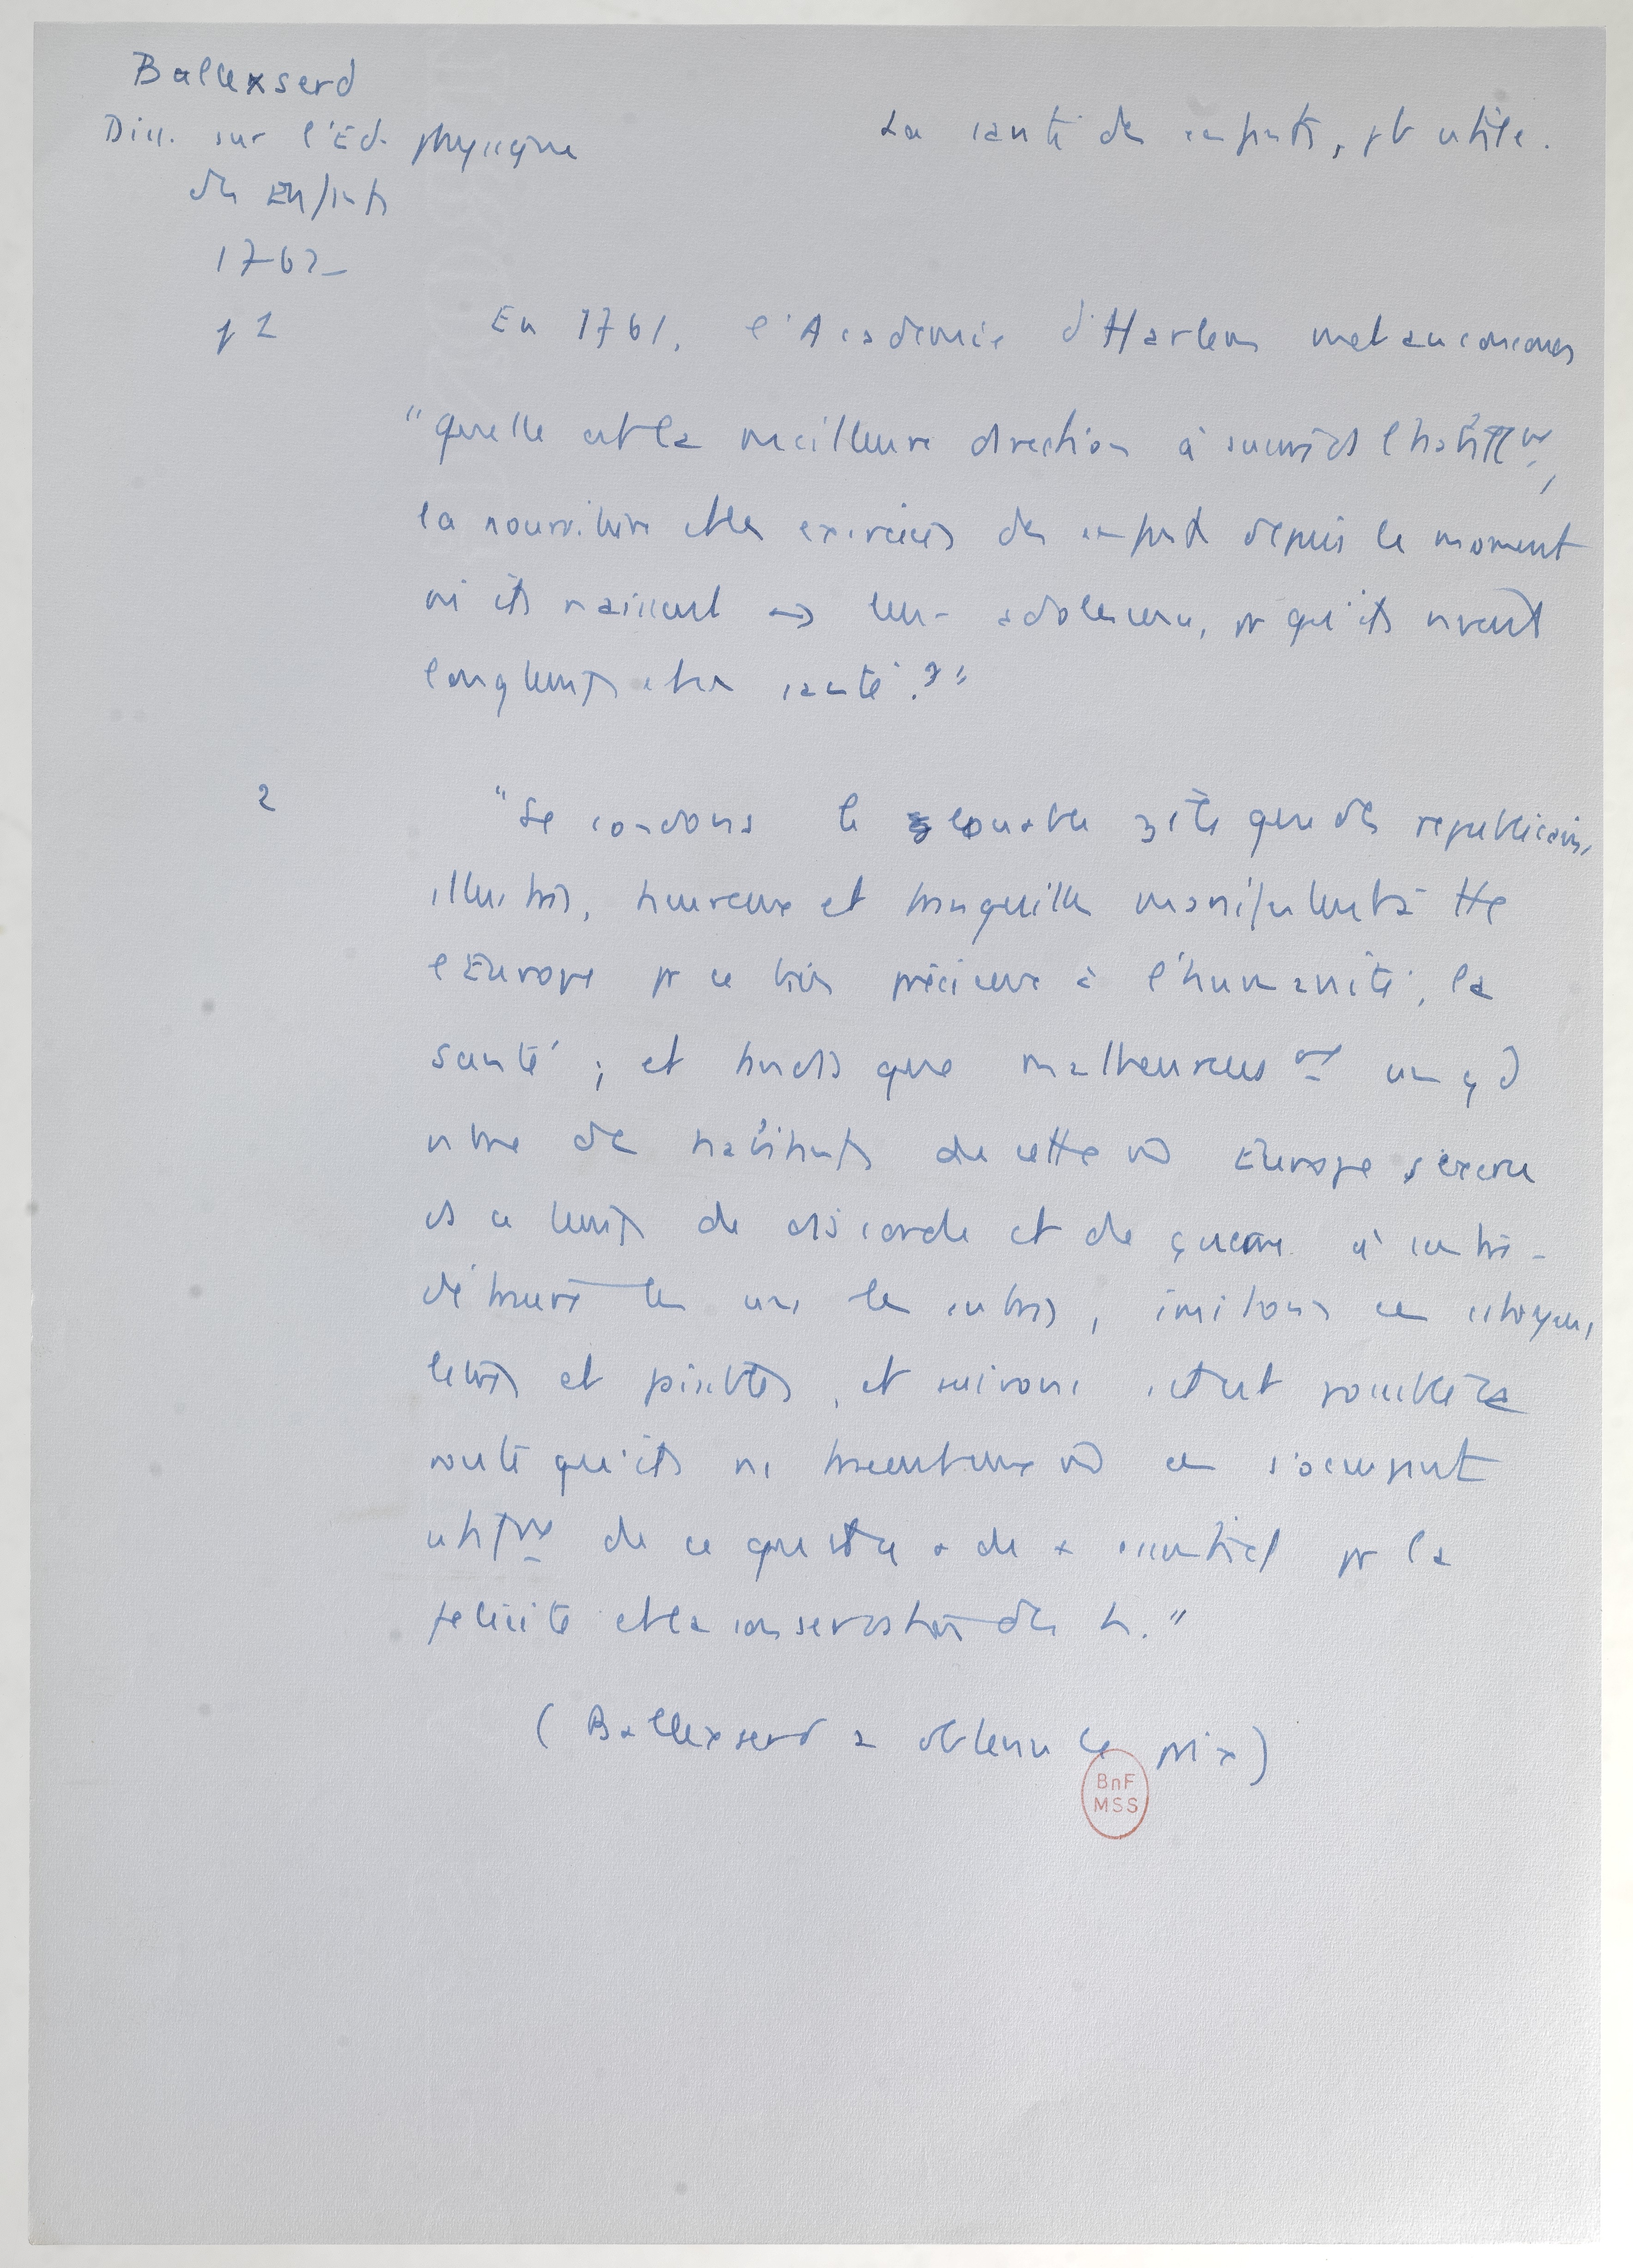 Ballexserd
Diss. sur l'Ed. physique
des Enfants
1762
p 2
La santé des enfants, pb utile.
En 1761, l'Académie d'Harlem met au concours
"quelle est la meilleure direction à suivre ds l'habillt,
la nourriture et les exercices des enfants depuis le moment
où ils naissent → leur adolescence, pr qu'ils vivent
longtemps et en santé ?"
2
"Secondons le louable zèle que des républicains
illustres, heureux et tranquilles manifestent à tte
l'Europe pr ce bien précieux à l'humanité, la
santé ; et tandis que malheureusemt un gd
nbre des habitants de cette Europe s'exerce
ds ce temps de discorde et de guerre à s'entre-
détruire les uns les autres, imitons ces citoyens
lettrés et paisibles, et suivons s'il est possible la
route qu'ils ns tracent en s'occupant
utilemt de ce qu'est ce + de + essentiel pr la
félicité et la conservation des h."
(Ballexserd a obtenu le prix)
BnF
MSS